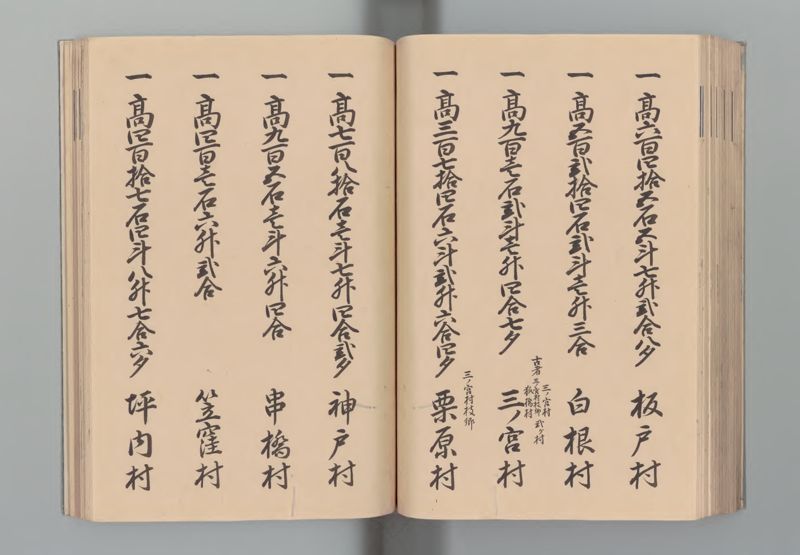 一 髙六百四拾五石五斗七升弐合八夕 板戸村
一 髙五百弐拾四石弐斗壱升三合 白根村
古者 三ノ宮村 弐ヶ村
一 髙九百壱石弐斗壱升四合七夕 三ノ宮村
三ノ宮村枝郷
一 髙三百七拾四石六斗弐升六合四夕 栗原村
一 髙七百八拾石壱斗七升四合弐夕 神戸村
一 髙九百五石壱斗六升四合 串橋村
一 髙四百壱石六升弐合 笠窪村
一 髙四百拾七石四斗八升七合六夕 坪内村